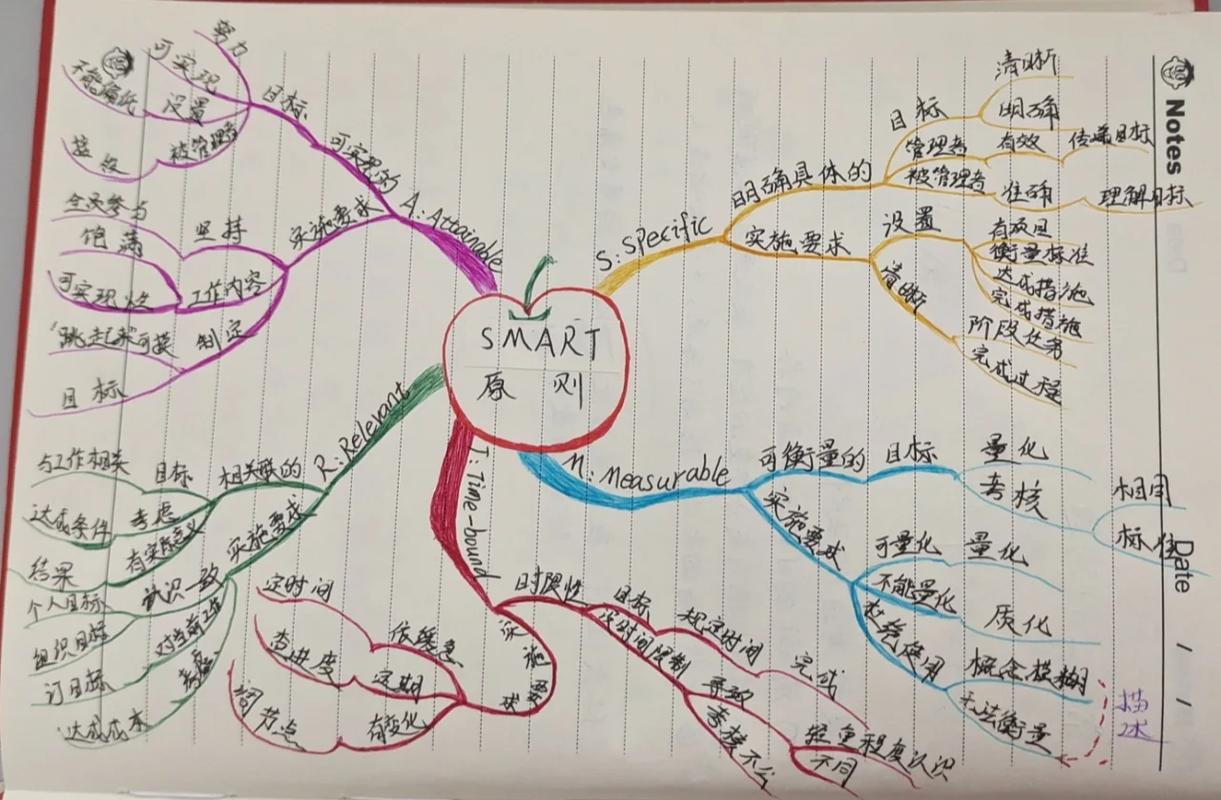 SMART
原则
S:Specific
明确具体的
目标
清晰
明确
管理者
有效
传递目标
被管理者
准确
理解目标
实施要求
设置
有项目
衡量标准
达成措施
完成措施
阶段任务
清晰
完成过程
M:Measurable
可衡量的
目标
量化
考核
相同
标准
实施要求
可量化
量化
不能量化
质化
概念模糊
无法衡量
描述
T:Time-bound
时限性
目标
规定时间
完成
没时间限制
导致
考核不公
轻重程度认识
不同
实施要求
依缓急
定时间
定期
查进度
有变化
调节点
R:Relevant
相关联的
目标
与工作相关
考虑
达成条件
有实际意义
结果
实施要求
认识一致
个人目标
组织目标
对当前工作
订目标
考虑
达成成本
A:Attainable
可实现的
目标
努力
可实现
设置
不能偏低
被管理者
接收
实施要求
坚持
全员参与
工作内容
饱满
可实现性
制定
"跳起来"可摸
目标
Notes
Date / /